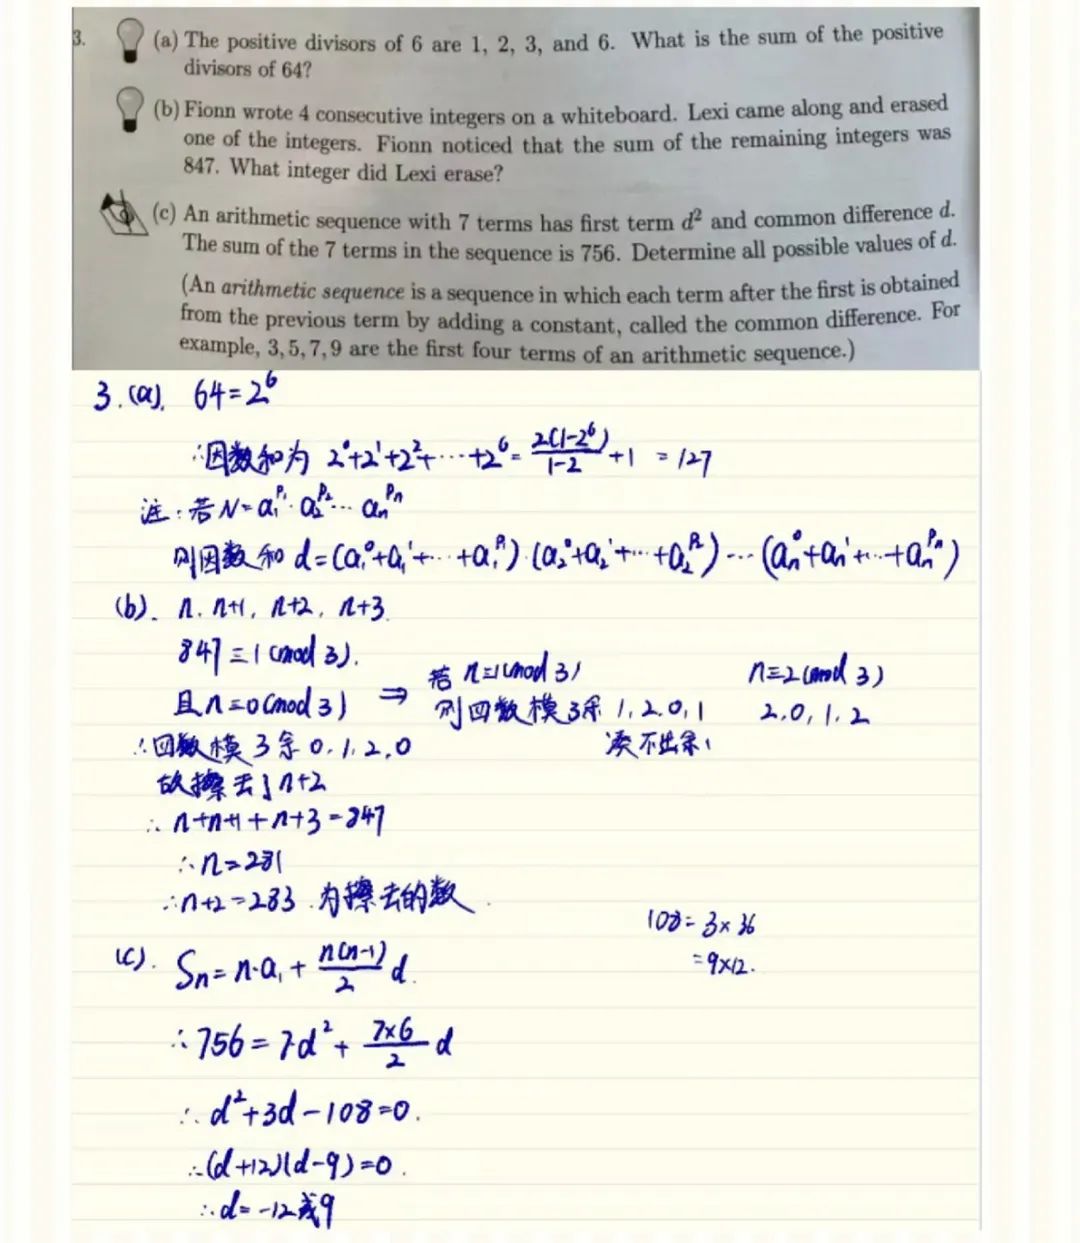 3. (a) The positive divisors of 6 are 1, 2, 3, and 6. What is the sum of the positive
divisors of 64?
(b) Fionn wrote 4 consecutive integers on a whiteboard. Lexi came along and erased
one of the integers. Fionn noticed that the sum of the remaining integers was
847. What integer did Lexi erase?
(c) An arithmetic sequence with 7 terms has first term d² and common difference d.
The sum of the 7 terms in the sequence is 756. Determine all possible values of d.
(An arithmetic sequence is a sequence in which each term after the first is obtained
from the previous term by adding a constant, called the common difference. For
example, 3, 5, 7, 9 are the first four terms of an arithmetic sequence.)
3. (a). 64=2⁶
∴因数和为 2⁰+2¹+2²+…+2⁶= 2(1-2⁶)/(1-2) +1 =127
注:若N=a₁^P₁·a₂^P₂…aₙ^Pₙ
则因数和 d=(a₁⁰+a₁¹+…+a₁^P₁)·(a₂⁰+a₂¹+…+a₂^P₂)…(aₙ⁰+aₙ¹+…+aₙ^Pₙ)
(b). n. n+1, n+2, n+3.
847≡1(mod 3).
且n≡0(mod 3) ⇒
若 n≡1(mod 3)
则四数模3余 1,2,0,1
凑不出余1
n≡2(mod 3)
2,0,1,2
∴四数模3余 0,1,2,0
故擦去了n+2
∴ n+n+1+n+3=847
∴n=281
∴n+2=283.为擦去的数.
(c). Sₙ=n·a₁+ n(n-1)/2 d.
108=3×36
=9×12.
∴756=7d²+ 7×6/2 d
∴d²+3d-108=0.
∴(d+12)(d-9)=0.
∴d=-12或9